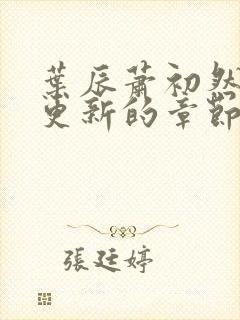 葉辰蕭初然
更新的章節
張廷婷